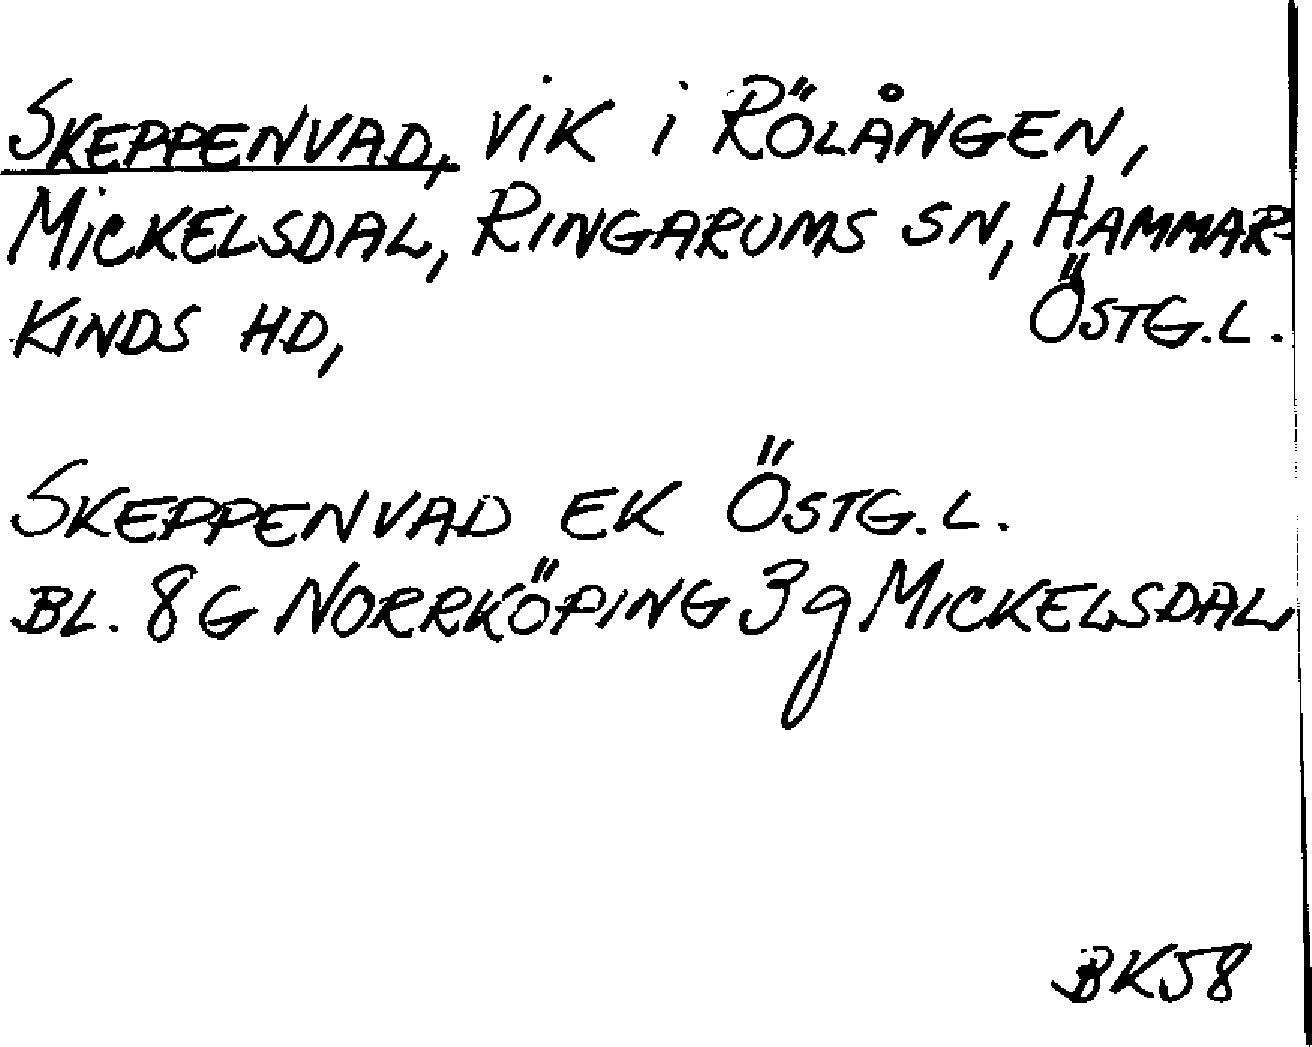 SKEPPENVAD, VIK I RÖLÅNGEN,
MICKELSDAL, RINGARUMS SN, HAMMAR-
KINDS HD, ÖSTG.L.
SKEPPENVAD EK ÖSTG.L.
BL. 8G NORRKÖPING 3g MICKELSDAL
BK58